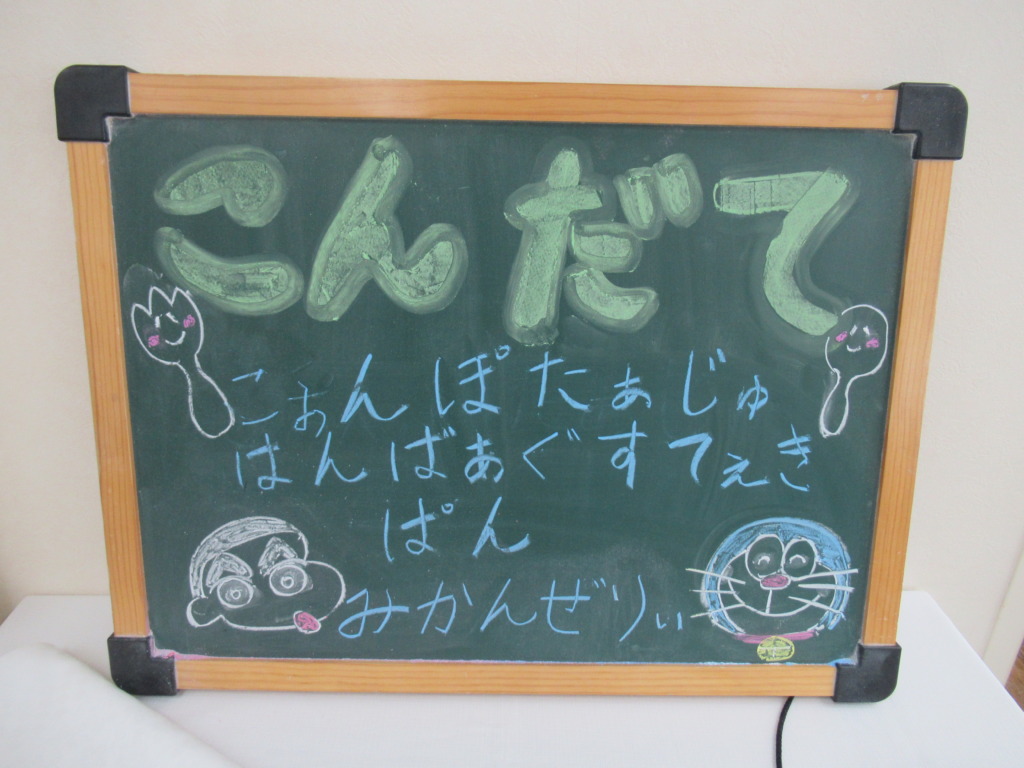 こんだて
こぉんぽたぁじゅ
はんばぁぐすてぇき
ぱん
みかんぜりぃ